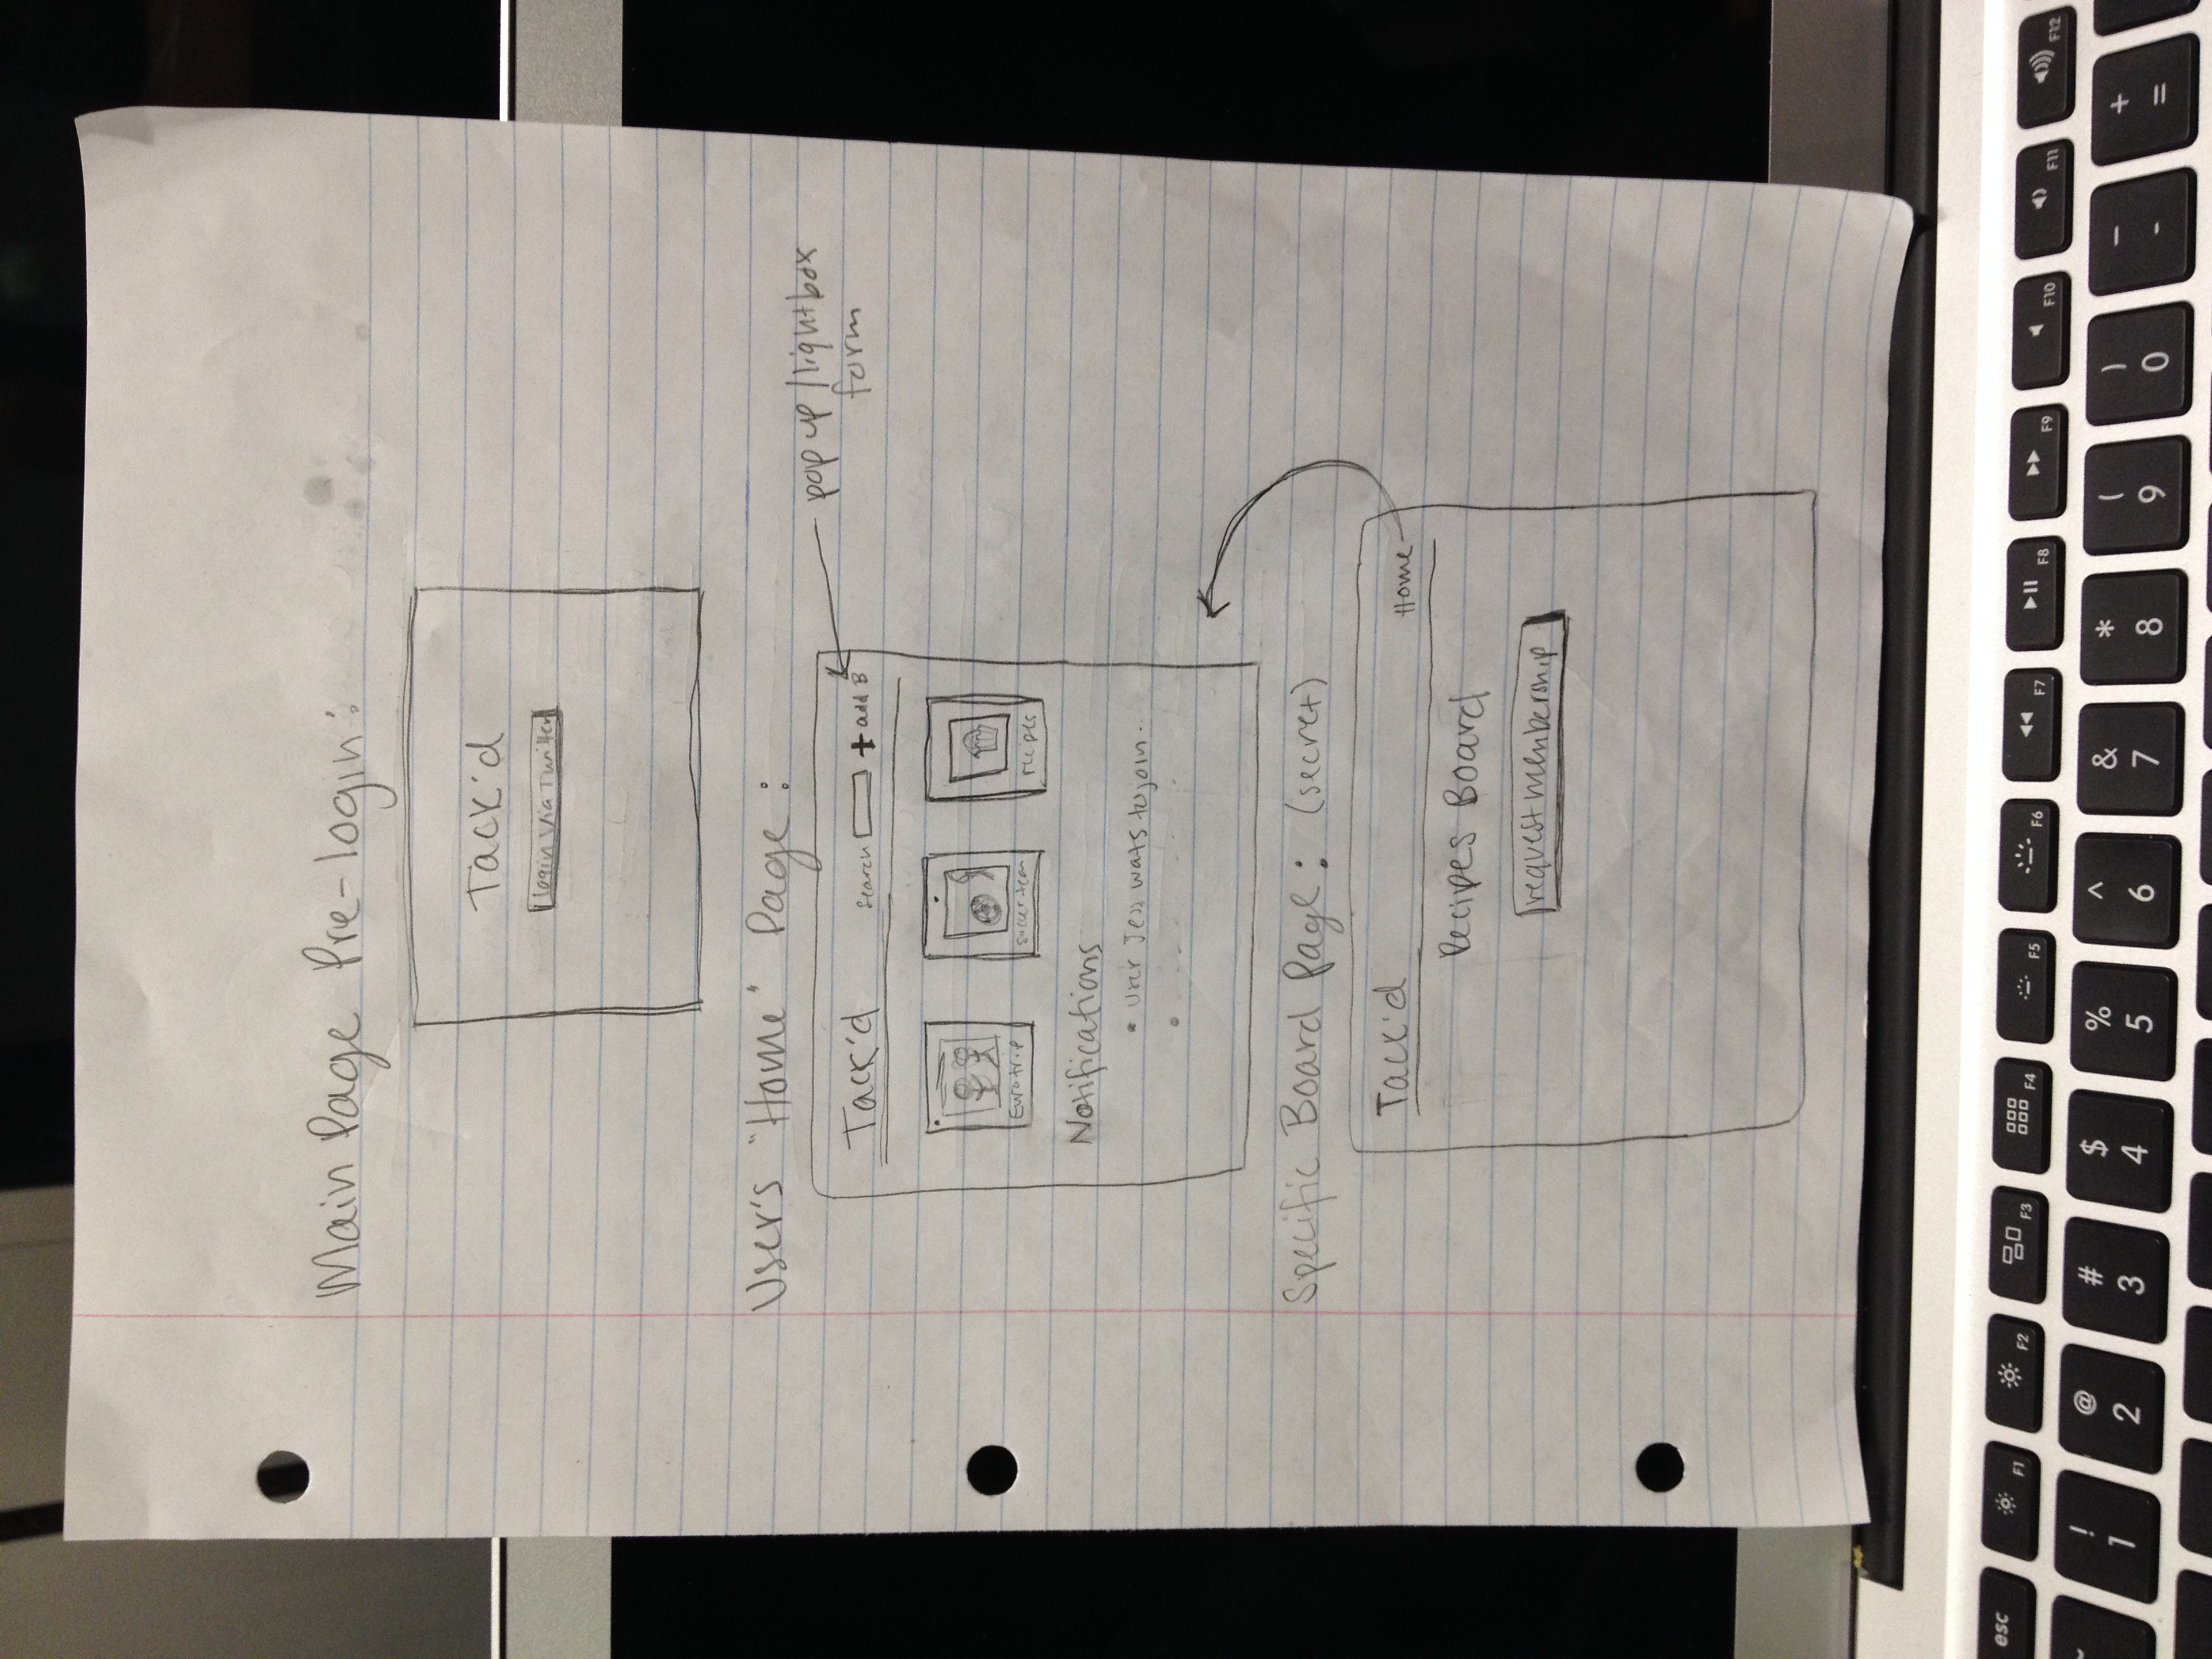 Main Page Pre-login:
Tack'd
login via Twitter
User's "Home" Page:
pop up/lightbox
form
Tack'd search + add B
Eurotrip soccer team recipes
Notifications
• User Jess wats to join.
•
Specific Board Page: (secret)
Tack'd Home
Recipes Board
request membership
esc F1 F2 F3 F4 F5 F6 F7 F8 F9 F10 F11 F12
~ ! @ # $ % ^ & * ( ) – +
1 2 3 4 5 6 7 8 9 0 - =